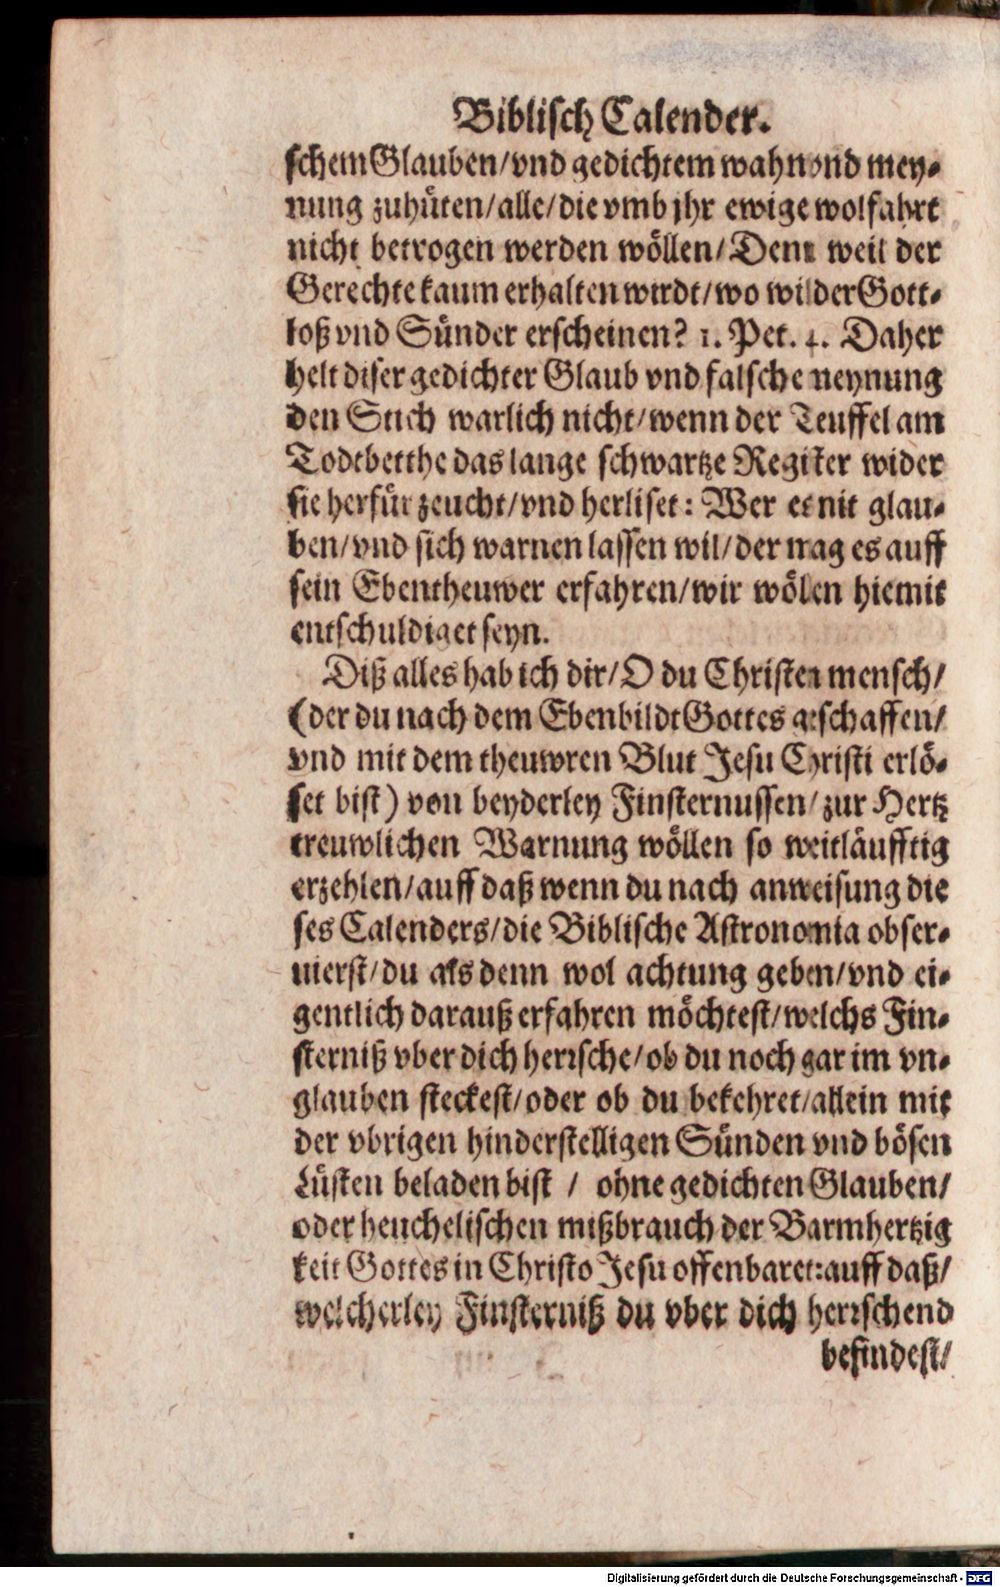 Biblisch Calender.
schem Glauben/vnd gedichtem wahn vnd mey-
nung zuhüten/alle/die vmb jhr ewige wolfahrt
nicht betrogen werden wöllen/Denn weil der
Gerechte kaum erhalten wirdt/wo wil der Gott-
loß vnd Sünder erscheinen? 1. Pet. 4. Daher
helt diser gedichter Glaub vnd falsche meynung
den Stich warlich nicht/wenn der Teuffel am
Todtbetthe das lange schwartze Register wider
sie herfür zeucht/vnd herliset: Wer es nit glau-
ben/vnd sich warnen lassen wil/der mag es auff
sein Ebentheuwer erfahren/wir wöllen hiemit
entschuldiget seyn.
Diß alles hab ich dir/O du Christen mensch/
(der du nach dem Ebenbildt Gottes geschaffen/
vnd mit dem theuwren Blut Jesu Christi erlö-
set bist) von beyderley Finsternussen/zur Hertz
treuwlichen Warnung wöllen so weitläufftig
erzehlen/auff daß wenn du nach anweisung die
ses Calenders/die Biblische Astronomia obser-
uierst/du als denn wol achtung geben/vnd ei-
gentlich darauß erfahren möchtest/welchs Fin-
sterniß vber dich herrsche/ob du noch gar im vn-
glauben steckest/oder ob du bekehret/allein mit
der vbrigen hinderstelligen Sünden vnd bösen
Lüsten beladen bist / ohne gedichten Glauben/
oder heuchelischen mißbrauch der Barmhertzig
keit Gottes in Christo Jesu offenbaret: auff daß/
welcherley Finsterniß du vber dich herrschend
befindest/
Digitalisierung gefördert durch die Deutsche Forschungsgemeinschaft - DFG